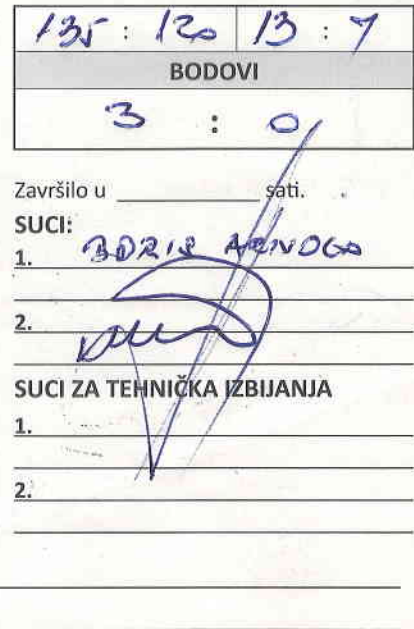 135 : 120 13 : 7
BODOVI
3 : 0
Završilo u ____________ sati.
SUCI:
1. BORIS
2.
SUCI ZA TEHNIČKA IZBIJANJA
1.
2.